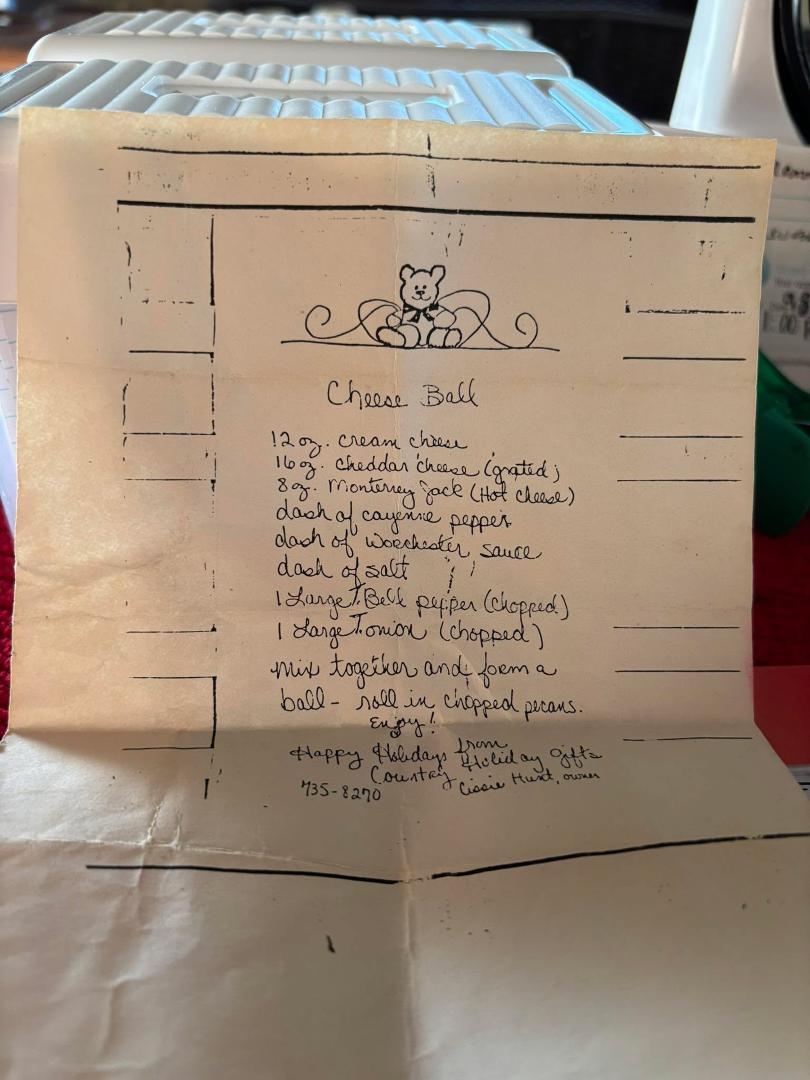 Cheese Ball
12 oz. cream cheese
16 oz. cheddar cheese (grated)
8 oz. Monterrey Jack (Hot cheese)
dash of cayenne pepper
dash of worchester sauce
dash of salt
1 Large T. Bell pepper (chopped)
1 Large T onion (chopped)
mix together and form a
ball - roll in chopped pecans.
Enjoy!
Happy Holidays from
Country Holiday Gifts
735-8270 Cissie Hunt, owner